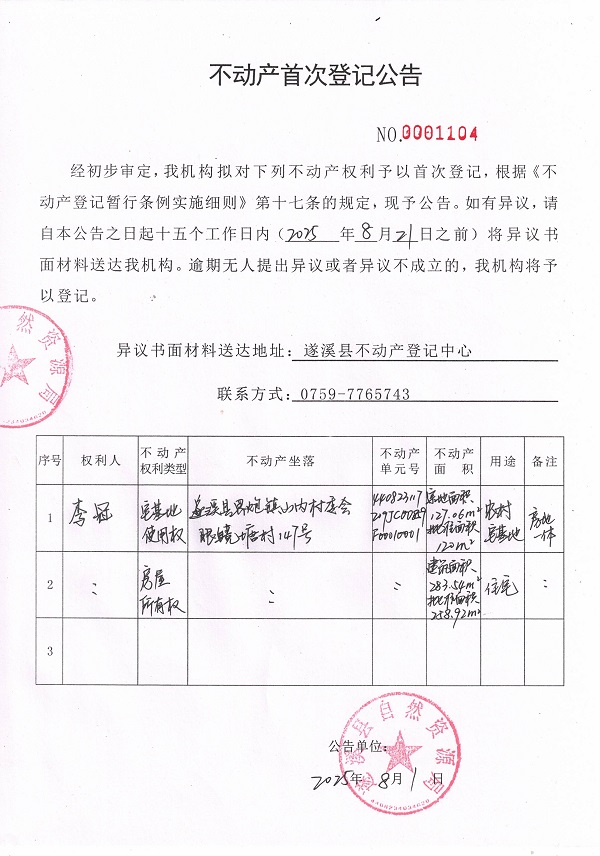 不动产首次登记公告
NO.0001104
经初步审定，我机构拟对下列不动产权利予以首次登记，根据《不
动产登记暂行条例实施细则》第十七条的规定，现予公告。如有异议，请
自本公告之日起十五个工作日内（2025 年 8 月 21 日之前）将异议书
面材料送达我机构。逾期无人提出异议或者异议不成立的，我机构将予
以登记。
异议书面材料送达地址：遂溪县不动产登记中心
联系方式：0759-7765743
序号 权利人 不动产权利类型 不动产坐落 不动产单元号 不动产面积 用途 备注
1 李冠 宅基地使用权 遂溪县界炮镇山内村委会 塘村147号 440823117 F00010001 宗地面积：127.06m² 批准面积：120m² 农村宅基地 房地一体
2 〃 房屋所有权 〃 〃 建筑面积：283.54m² 批准面积：258.92m² 住宅 〃
3
公告单位：
2025年 8月 1日
遂溪县自然资源局
然资源局